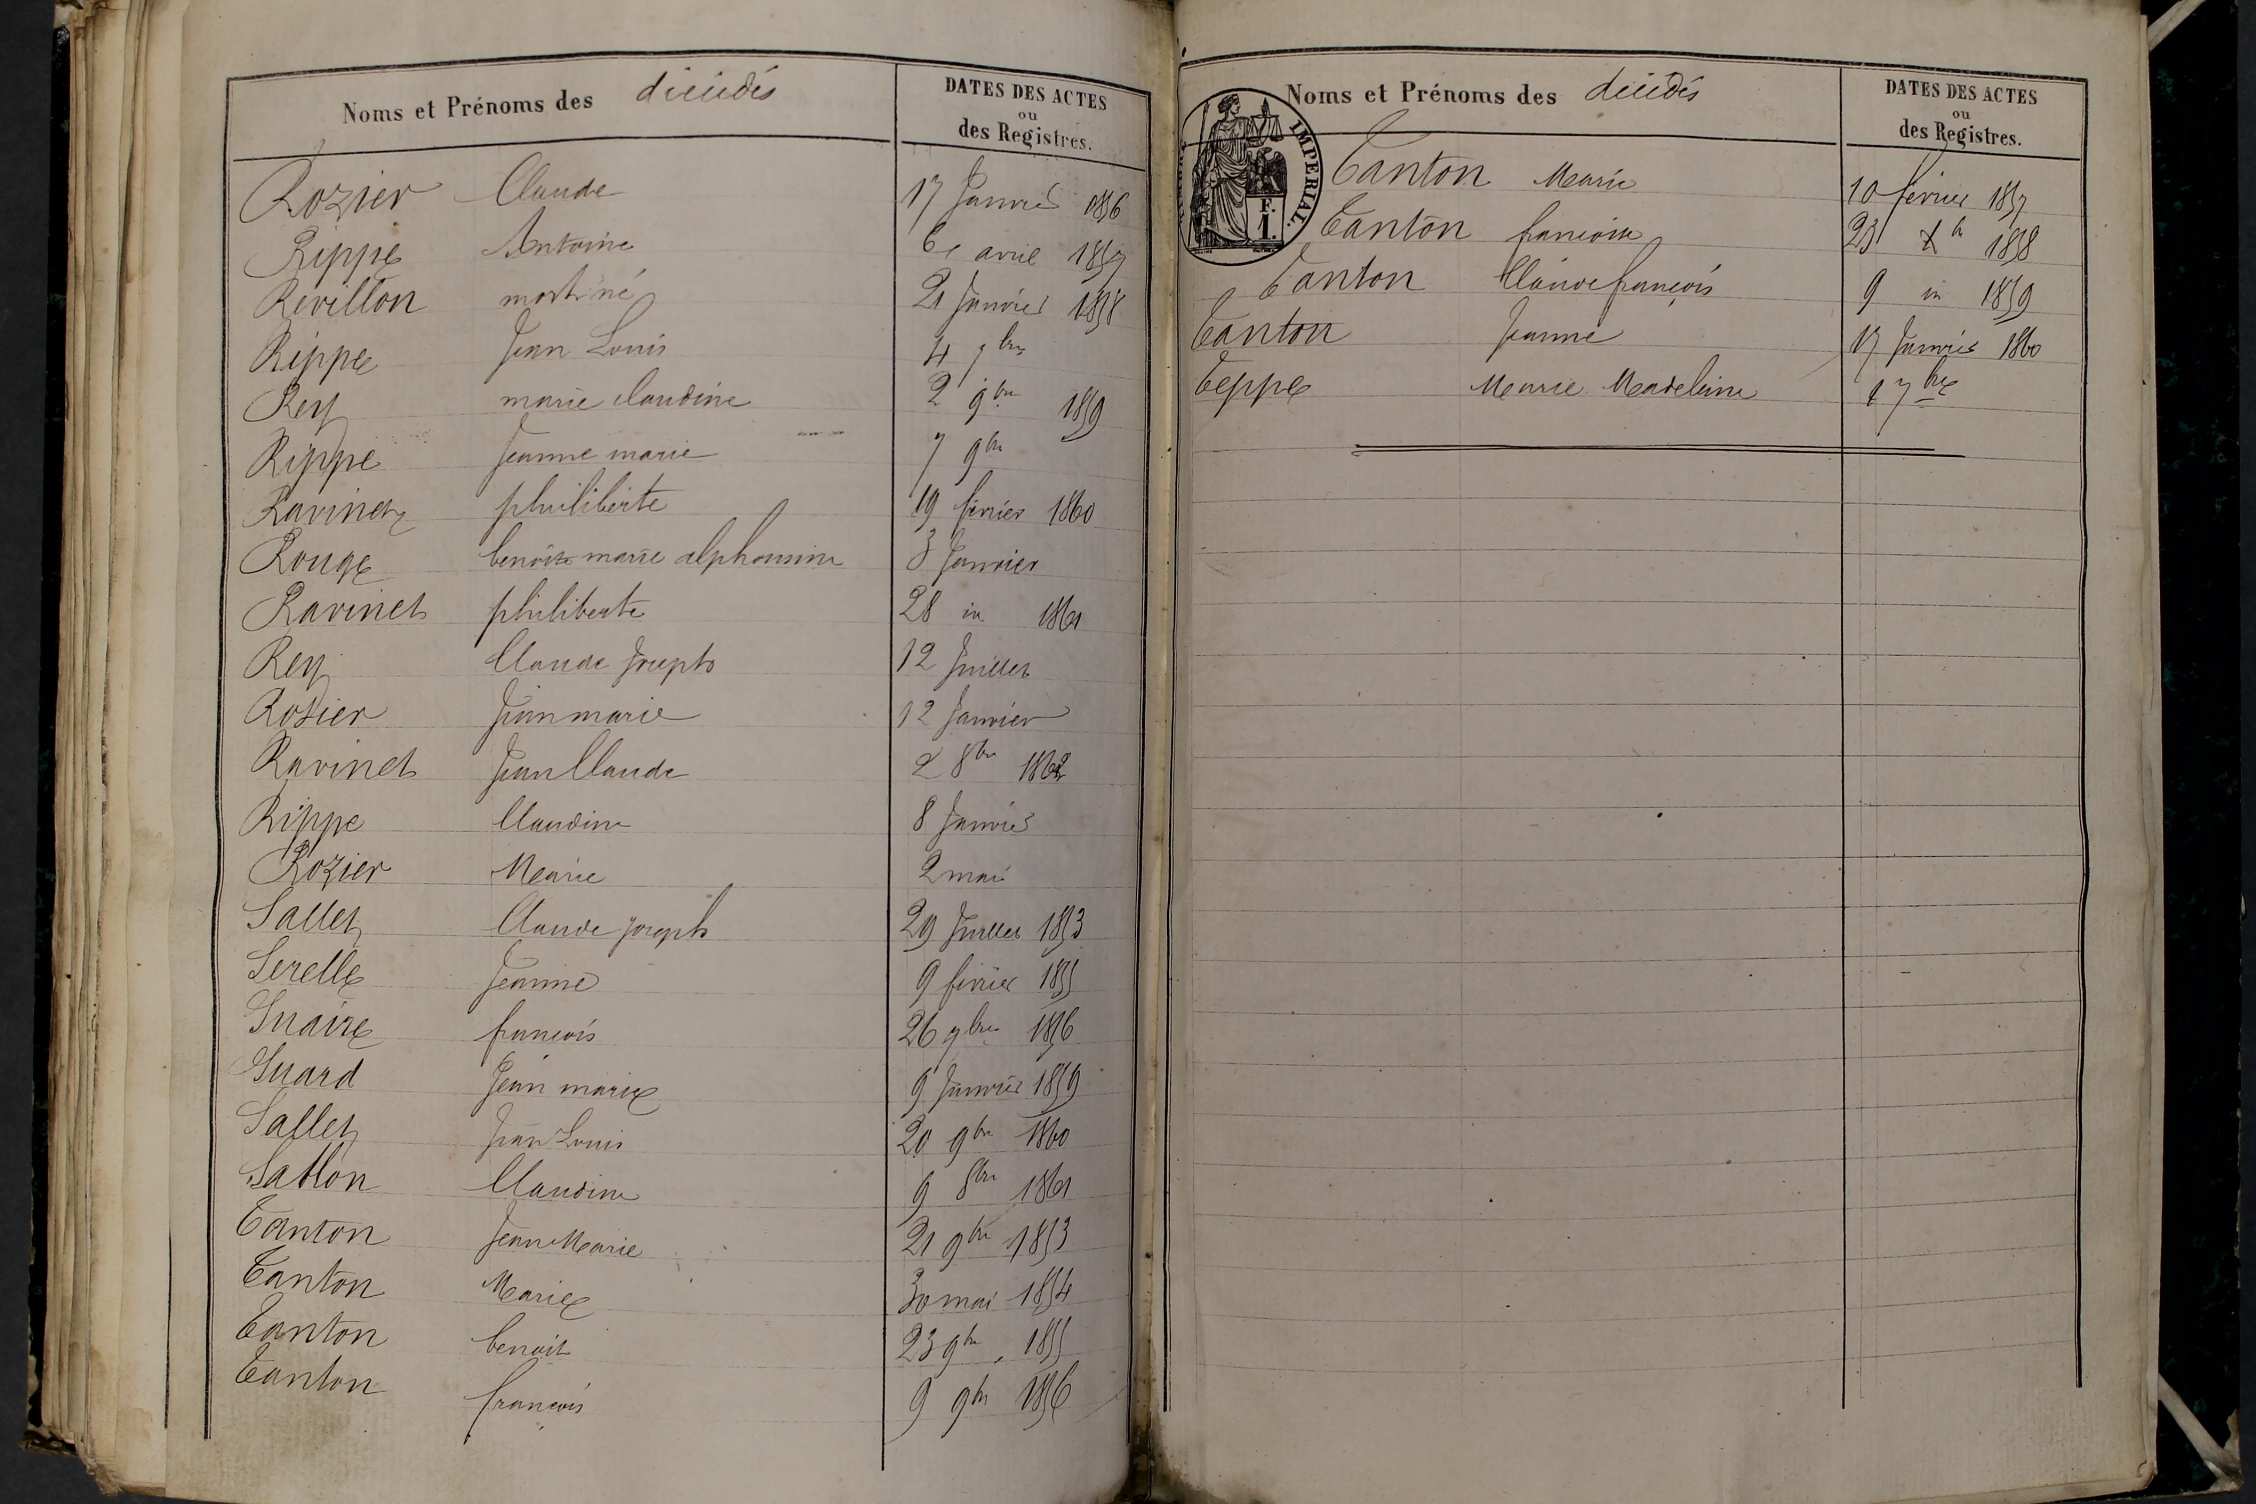 Noms et Prénoms des décédés
DATES DES ACTES
ou
des Registres.
Rozier Claude 17 Janvier 1856
Rippe Antoine 6 avril 1857
Revillon mort né 21 Janvier 1858
Rippe Jean Louis 4 7bre
Rey marie claudine 2 9bre 1859
Rippe Jeanne marie 7 9bre
Ravinet philiberte 19 février 1860
Rouge benoite marie alphonsine 3 Janvier
Ravinet philiberte 28 in 1861
Rey Claude Joseph 12 Juillet
Rozier Jean marie 12 Janvier
Ravinet Jean Claude 2 8bre 1862
Rippe Claudine 8 Janvier
Rozier Marie 2 mai
Sallet Claude joseph 29 Juillet 1853
Serelle Jeanne 9 février 1855
Suaire françois 26 7bre 1856
Suard Jean marie 9 Janvier 1859
Sallet Jean Louis 20 9bre 1860
Sablon Claudine 9 8bre 1861
Tanton Jean Marie 21 9bre 1853
Tanton Marie 30 mai 1854
Tanton benoit 23 9bre 1855
Tanton françois 9 9bre 1856
Noms et Prénoms des décédés
DATES DES ACTES
ou
des Registres.
IMPERIAL.
F.
1.
Tanton Marie 10 février 1857
Tanton françoise 23 Xbr 1858
Tanton Claude françois 9 in 1859
Tanton Jeanne 17 Janvier 1860
Teppe Marie Madeleine 1 7bre